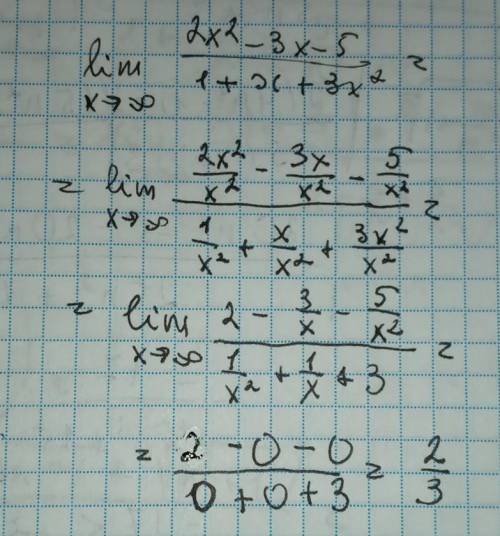 lim x→∞ (2x² - 3x - 5)/(1 + x + 3x²) =
= lim x→∞ (2x²/x² - 3x/x² - 5/x²)/(1/x² + x/x² + 3x²/x²) =
= lim x→∞ (2 - 3/x - 5/x²)/(1/x² + 1/x + 3) =
= (2 - 0 - 0)/(0 + 0 + 3) = 2/3